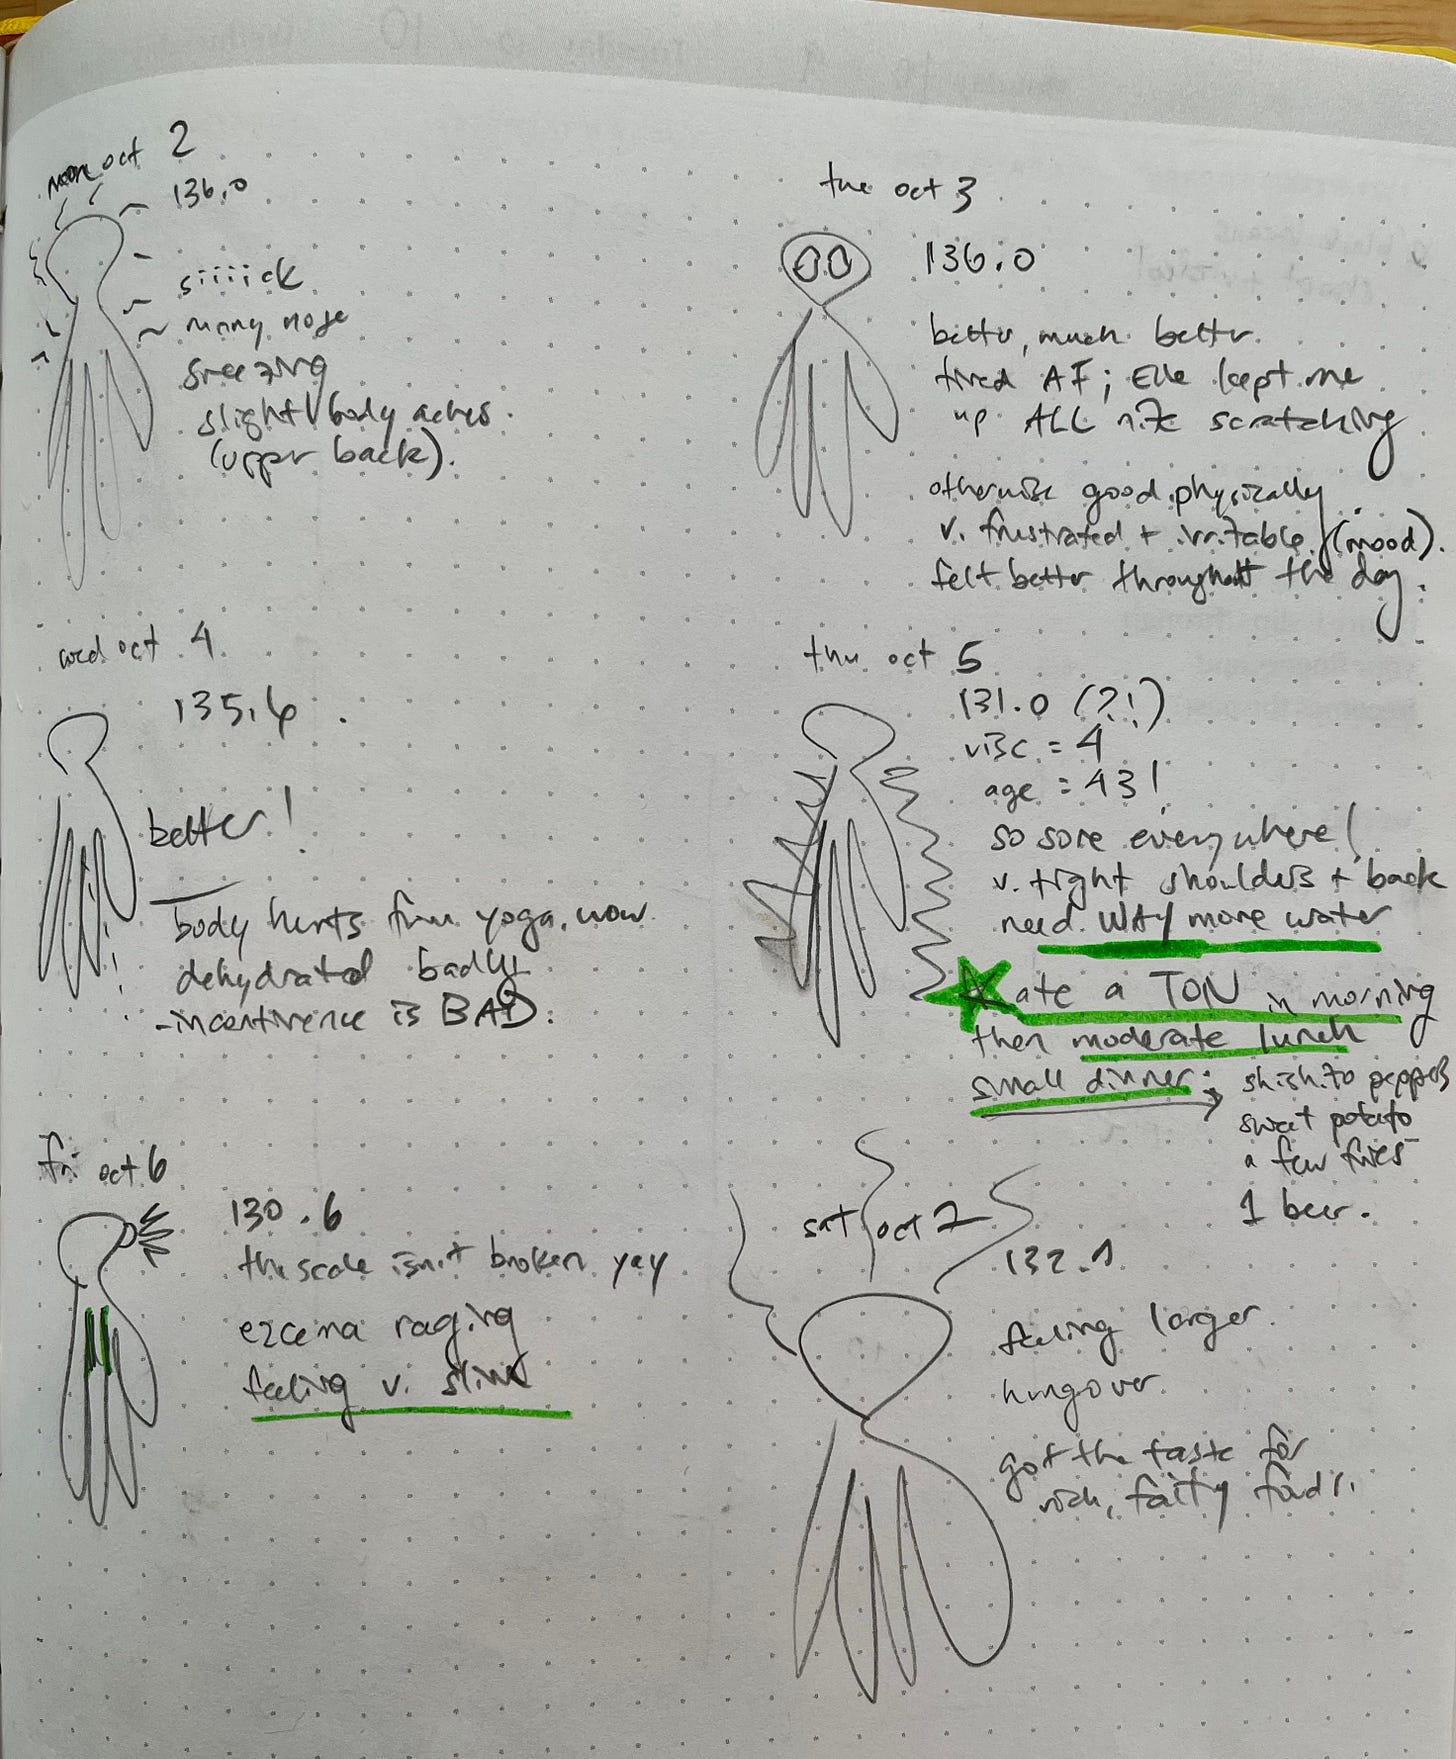 mon oct 2
136.0
siiiick
runny nose
sneezing
slight body aches.
(upper back).
tue oct 3
136.0
better, much better.
tired AF; Elle kept me
up ALL nite scratching
otherwise good physically
v. frustrated + irritable (mood).
felt better throughout the day.
wed oct 4
135.6
better!
body hurts from yoga. wow.
dehydrated badly
-incontinence is BAD.
thu oct 5
131.0 (?!)
visc = 4
age = 43!
so sore everywhere!
v. tight shoulders + back
need WAY more water
ate a TON in morning
then moderate lunch
small dinner: shishito peppers
sweet potato
a few fries
1 beer.
fri oct 6
130.6
the scale isn't broken yay
eczema raging
feeling v. slim
sat oct 7
feeling larger.
hungover
got the taste for
rich, fatty foods.